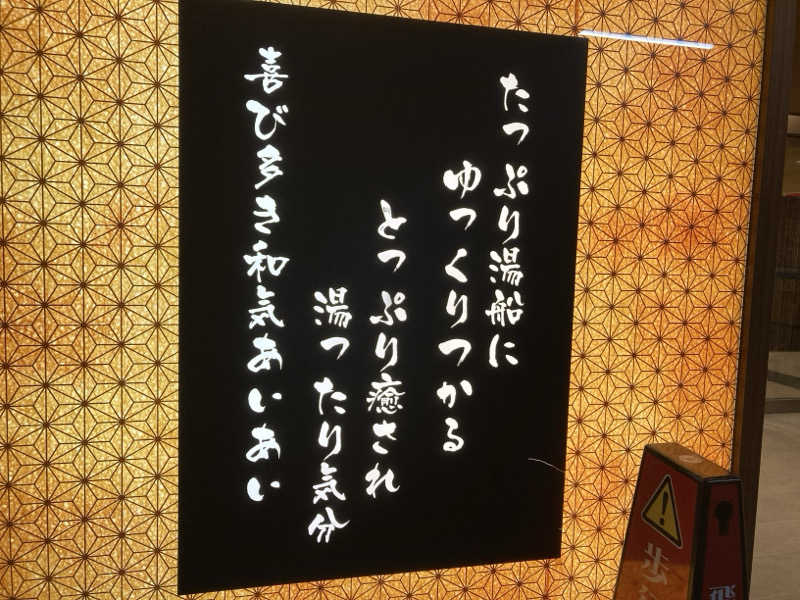 たっぷり湯船に
ゆっくりつかる
とっぷり癒され
湯ったり気分
喜び多き和気あいあい